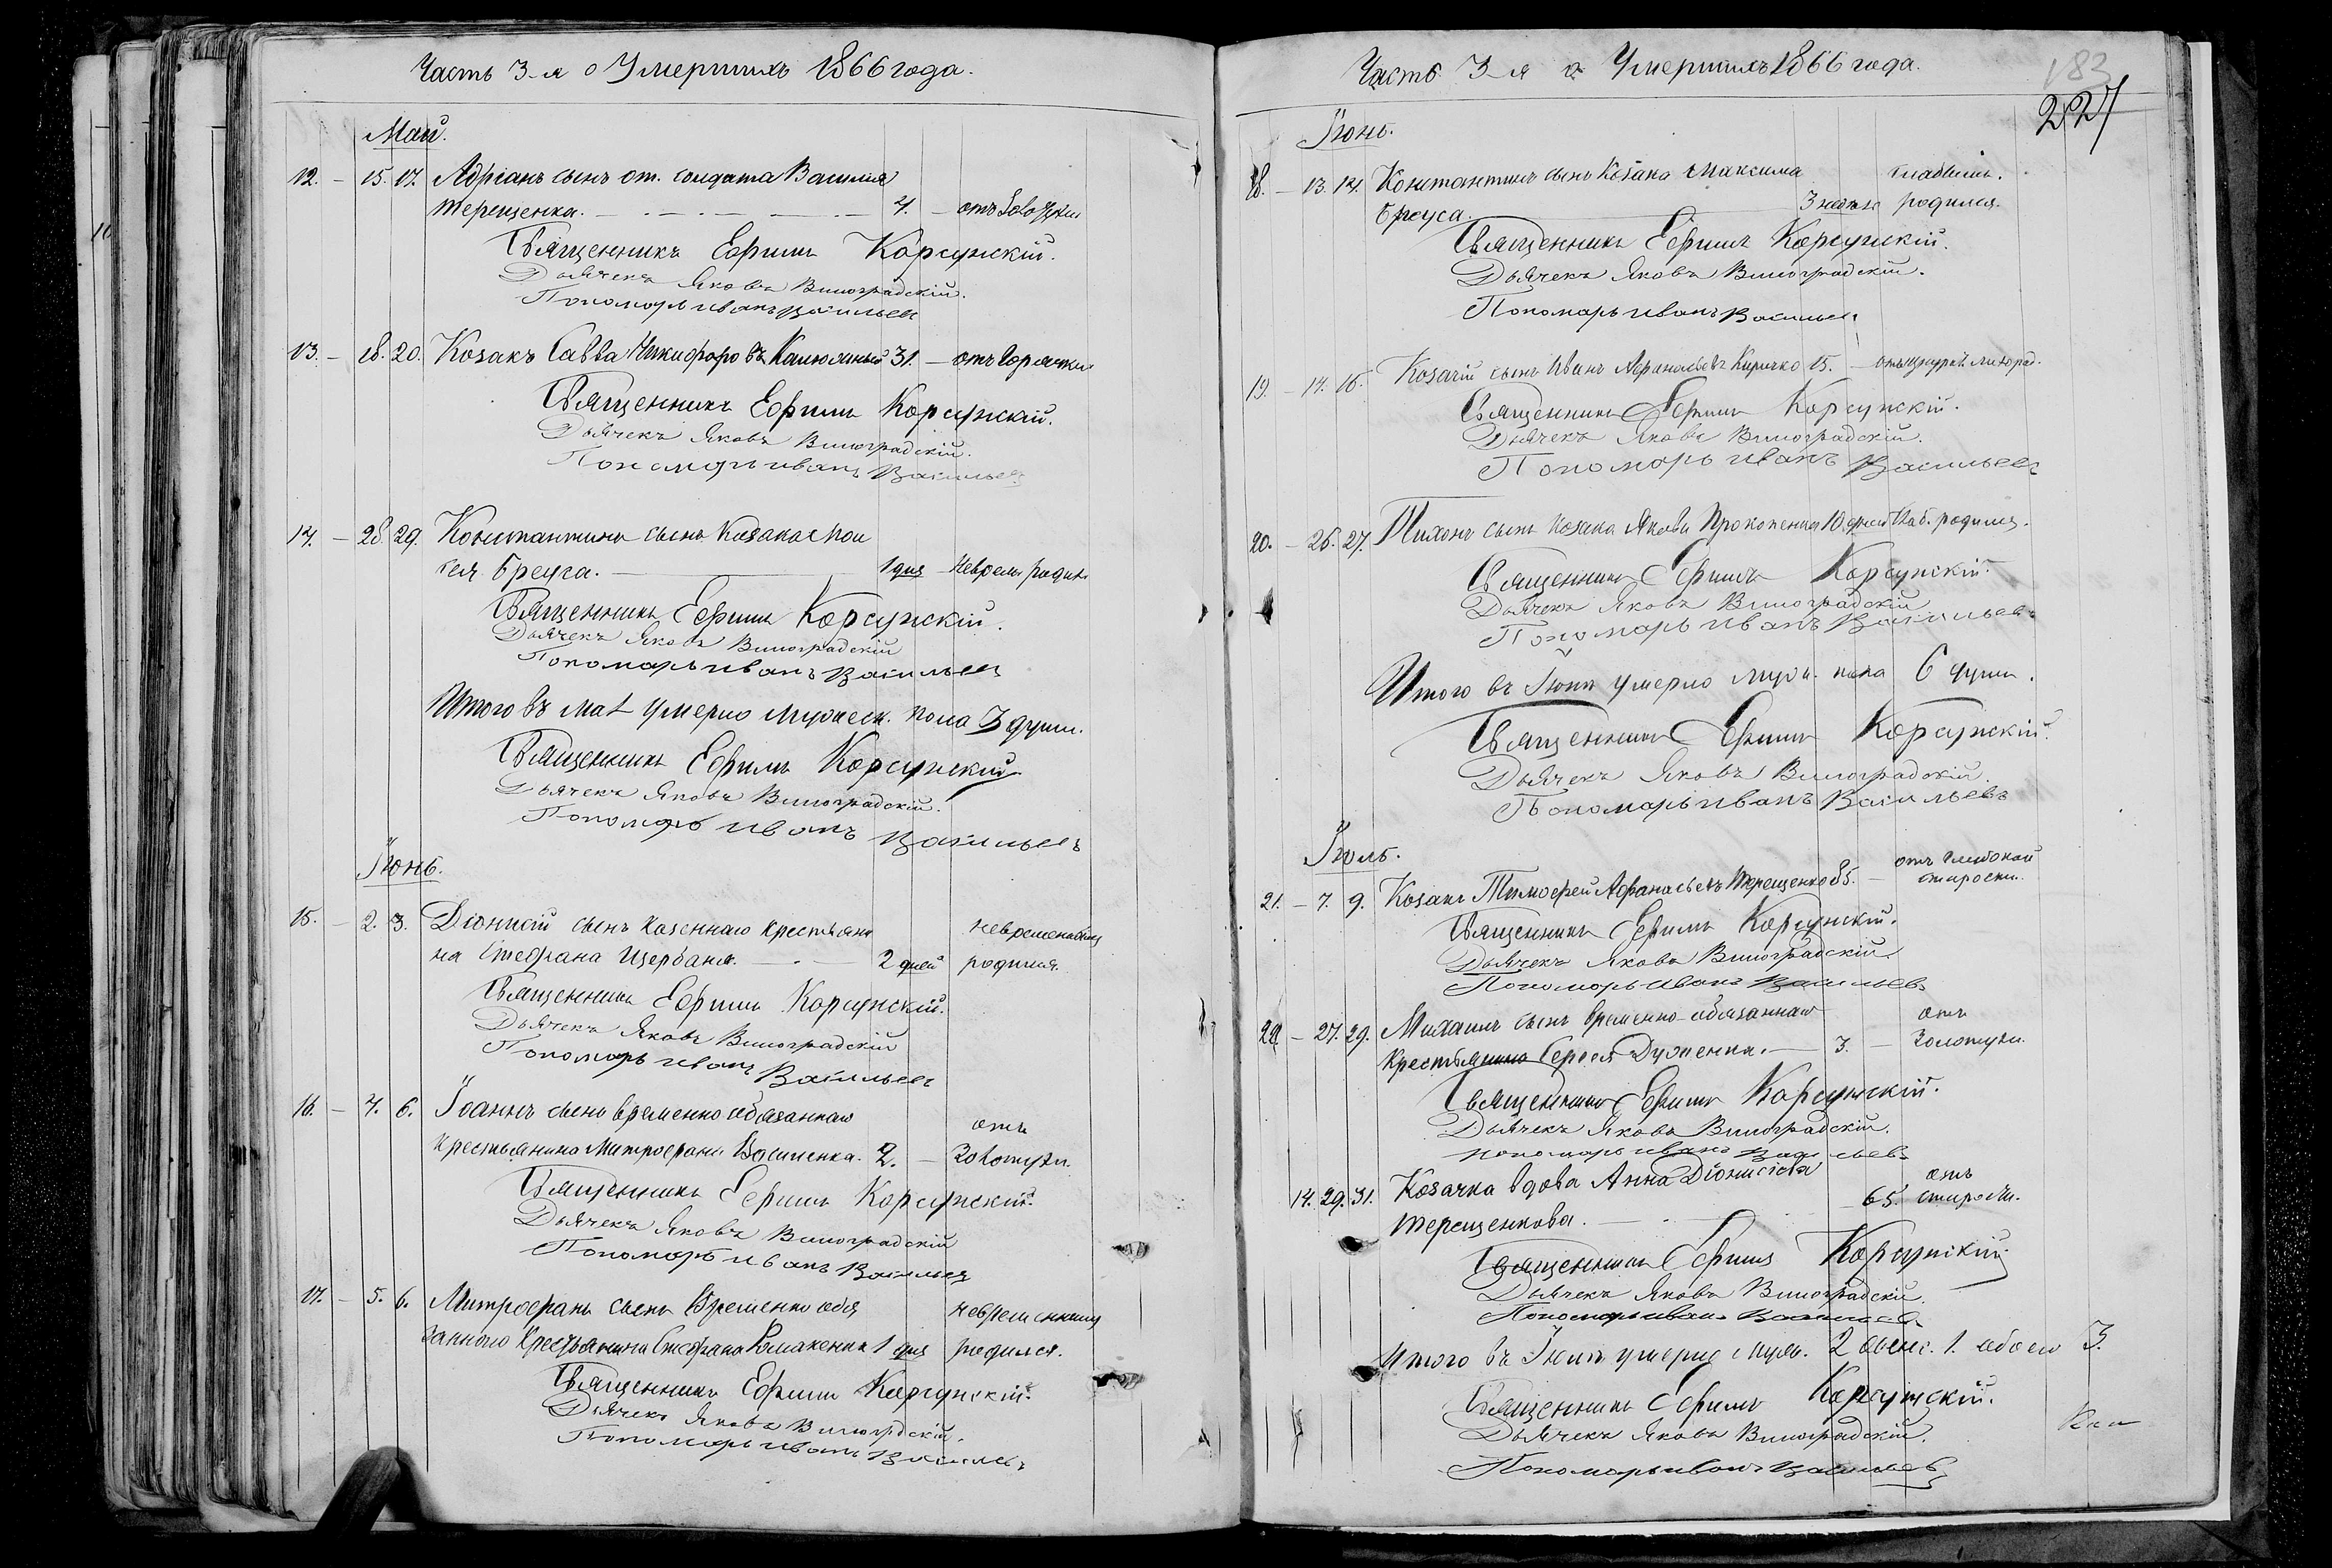 Часть 3-я о Умершихъ 1866 года.
Май.
12. – 15. 17. Адріанъ сынъ от. солдата Василія
Терещенка. 4. – отъ
Священникъ Ефимъ Корсунскій.
Дьячекъ Яковъ Виноградскій.
Пономарь Иванъ Васильев
13. – 18. 20. Козакъ Савва Никифоровъ 31. – отъ горячки
Священникъ Ефимъ Корсунскій.
Дьячекъ Яковъ Виноградскій.
Пономарь Иванъ Васильев
14. – 28. 29. Константинъ сынъ Козака Мои
сея Бреуса. 1 дня Невремен. родил.
Священникъ Ефимъ Корсунскій.
Дьячекъ Яковъ Виноградскій
Пономарь Иванъ Васильев
Итого въ Маѣ умерло мужеск. пола 3 души.
Священникъ Ефимъ Корсунскій
Дьячекъ Яковъ Виноградскій.
Пономарь Иванъ Васильевъ
Іюнь.
15. – 2. 3. Діонисій сынъ казеннаго крестьяни
на Стефана Щербаня. 2 дней невременный родился.
Священникъ Ефимъ Корсунскій.
Дьячекъ Яковъ Виноградскій
Пономарь Иванъ Васильев
16. – 4. 6. Іоаннъ сынъ временно обязаннаго
крестьянина Митрофана Василенка. 2. – отъ Золотухи.
Священникъ Ефимъ Корсунскій.
Дьячекъ Яковъ Виноградскій
Пономарь Иванъ Васильев
17. – 5. 6. Митрофанъ сынъ Временно обя
заннаго Крестьянина Стефана Романенка 1 дня невременный родился.
Священникъ Ефимъ Корсунскій.
Дьячекъ Яковъ Виноградскій.
Пономарь Иванъ Васильевъ
Часть 3-я о Умершихъ 1866 года.
183
227
Іюнь.
18. – 13. 14. Константинъ сынъ Козака Максима
Бреуса. 3 недѣль слабымъ. родился.
Священникъ Ефимъ Корсунскій.
Дьячекъ Яковъ Виноградскій.
Пономарь Иванъ Васильев
19. – 14. 16. Козачій сынъ Иванъ Афанасьевъ Киричко 15. –
Священникъ Ефимъ Корсунскій.
Дьячекъ Яковъ Виноградскій.
Пономарь Иванъ Васильев
20. – 26. 27. Тихонъ сынъ козака Якова Прокопенка 10 дней слаб. родился.
Священникъ Ефимъ Корсунскій.
Дьячекъ Яковъ Виноградскій
Пономарь Иванъ Васильевъ
Итого въ Іюнѣ умерло муж. пола 6 душъ.
Священникъ Ефимъ Корсунскій.
Дьячекъ Яковъ Виноградскій.
Пономарь Иванъ Васильевъ
Іюль.
21. – 7. 9. Козакъ Тимофей Афанасьевъ Терещенко 85. – отъ глубокой старости.
Священникъ Ефимъ Корсунскій.
Дьячекъ Яковъ Виноградскій
Пономарь Иванъ Васильевъ
22 – 27. 29. Михаилъ сынъ временно-обязаннаго
крестьянина Сергея Дуженка. – 3. – отъ Золотухи.
Священникъ Ефимъ Корсунскій.
Дьячекъ Яковъ Виноградскій.
Пономарь Иванъ Васильевъ
14. 29. 31. Козачка вдова Анна Діонисіева
Терещенкова. – 65. отъ старости.
Священникъ Ефимъ Корсунскій
Дьячекъ Яковъ Виноградскій.
Пономарь Иванъ Васильевъ
Итого въ Іюлѣ умерло муж. 2 женс. 1. обоего 3.
Священникъ Ефимъ Корсунскій.
Дьячекъ Яковъ Виноградскій.
Пономарь Иванъ Васильевъ